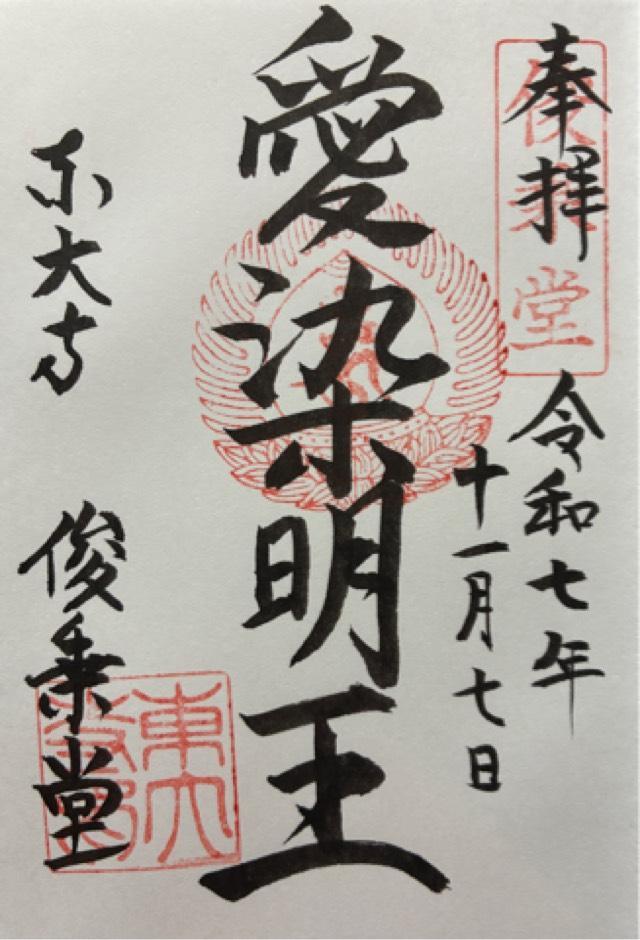 奉拝
俊乗堂
令和七年
十一月七日
愛染明王
東大寺
俊乗堂